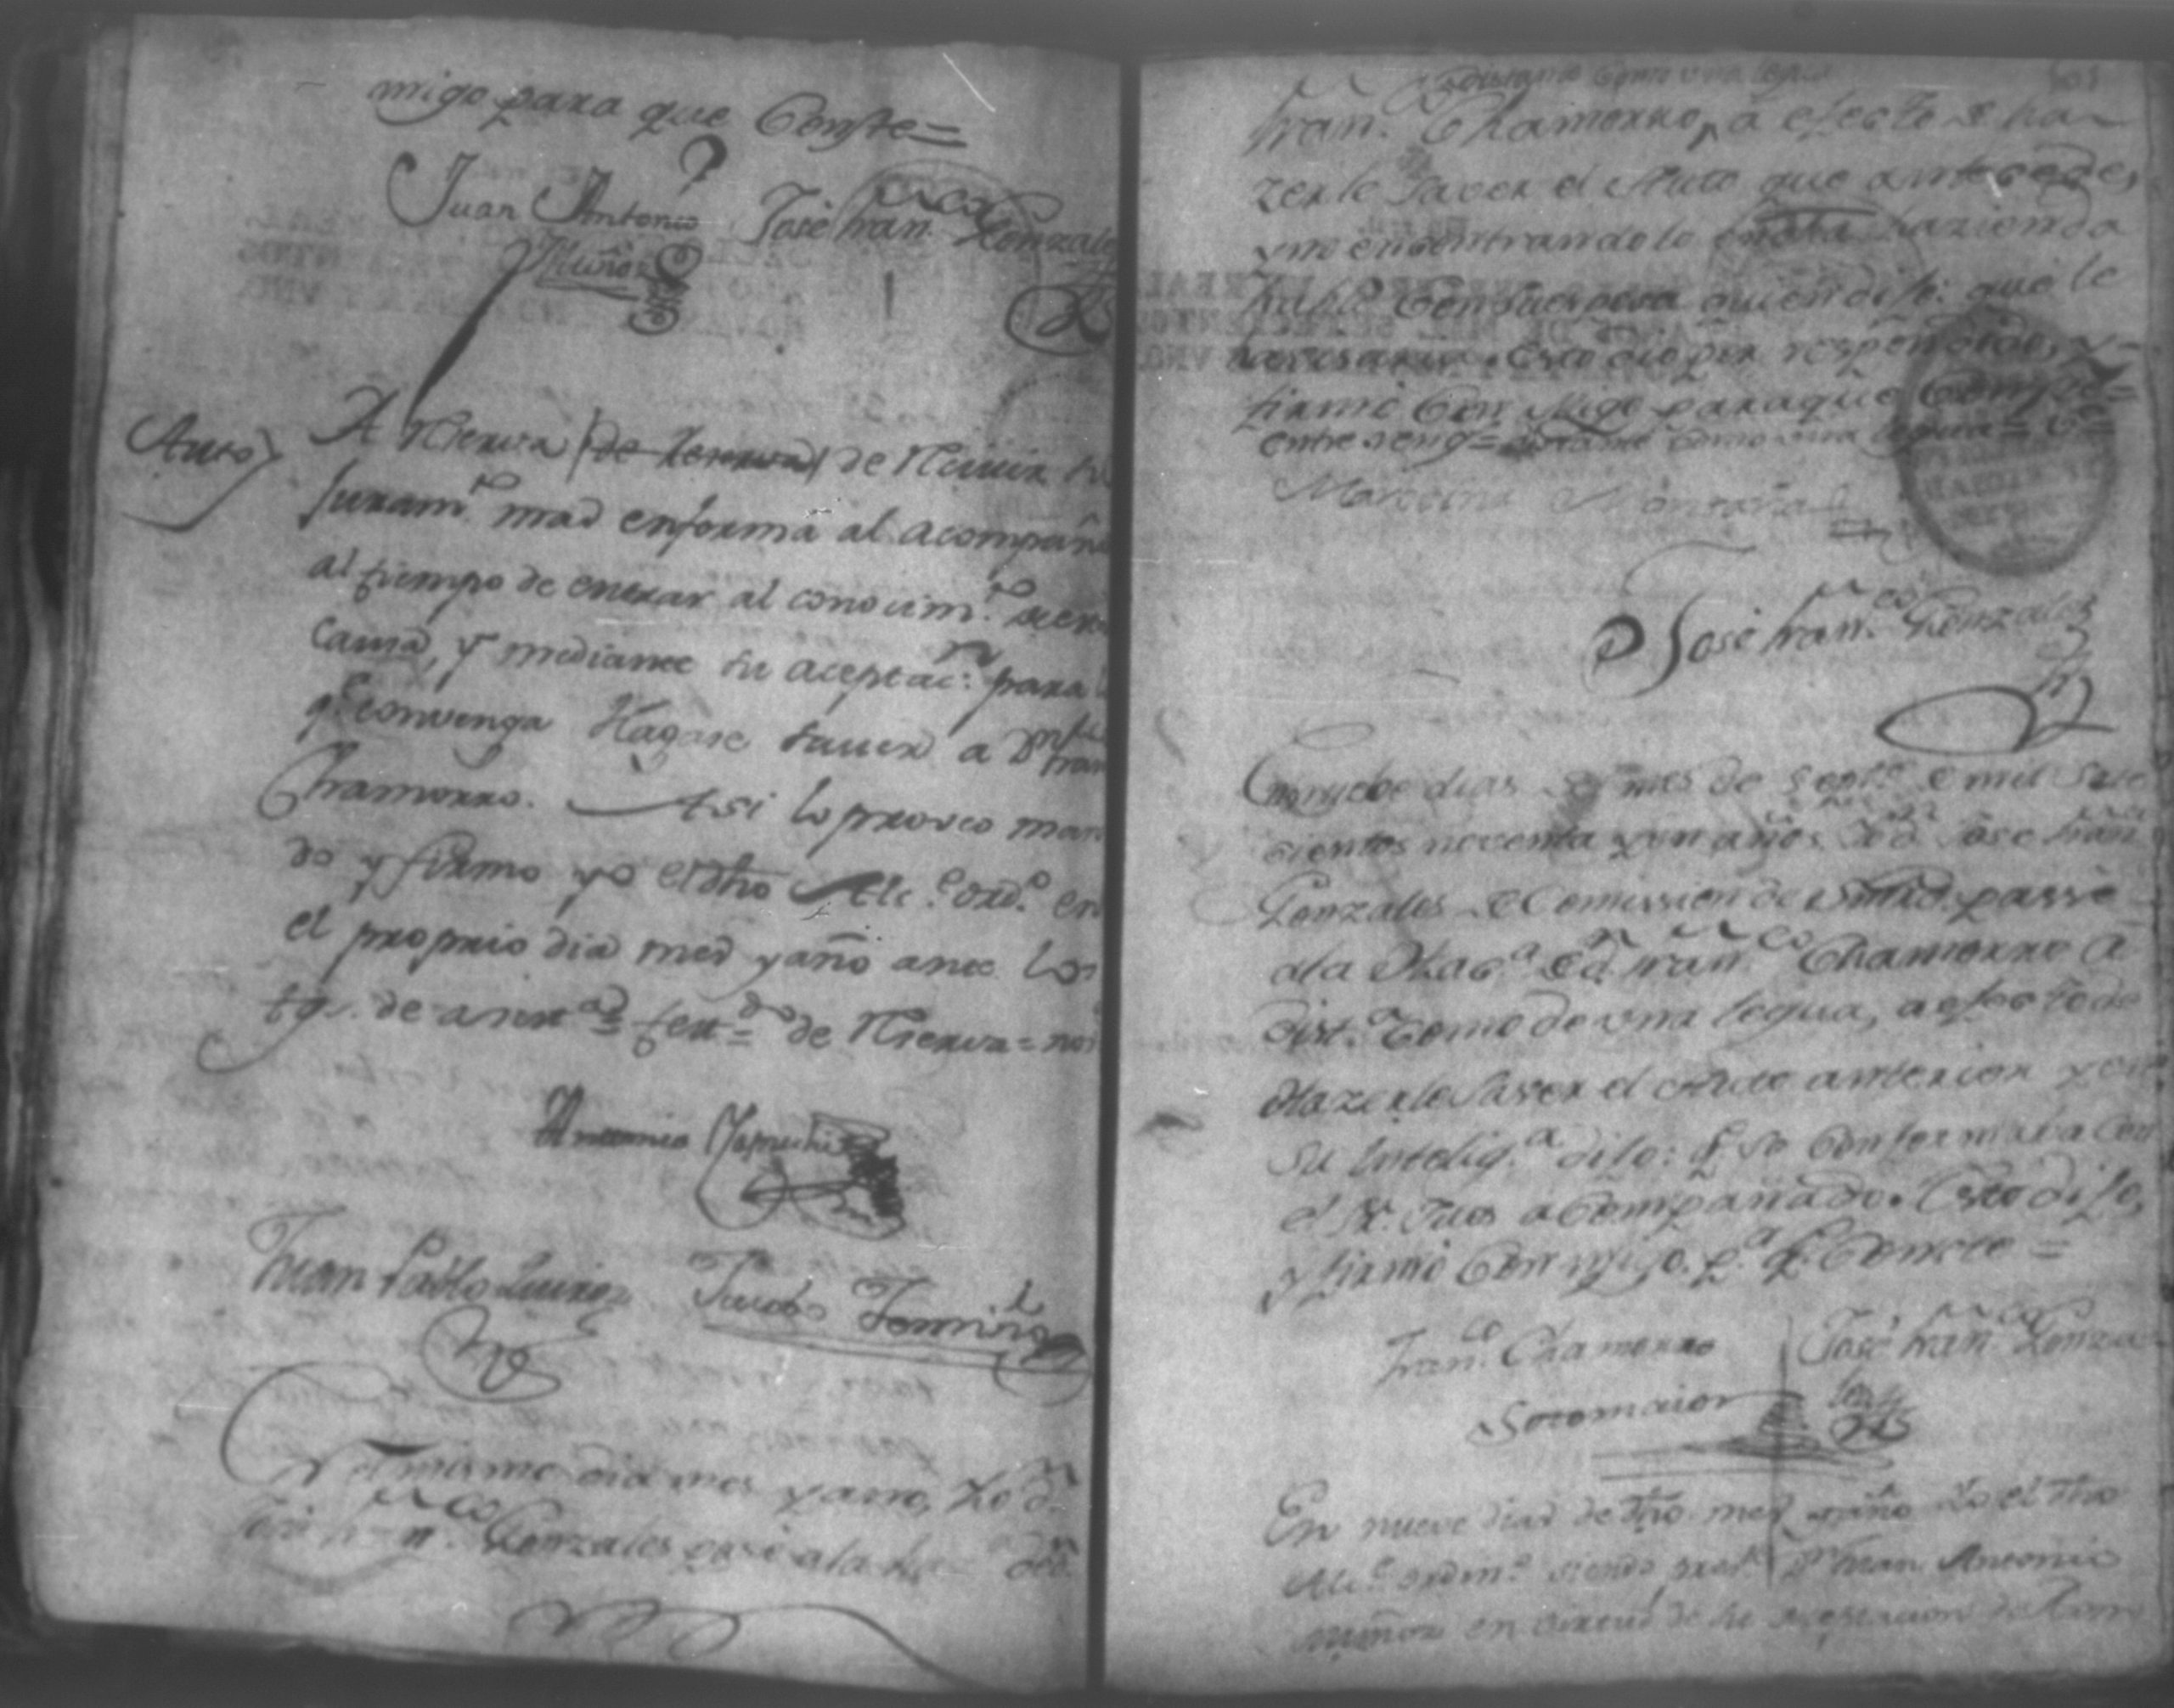 migo para que Conste=
Juan Antonio
Muñoz
José Fran.co Gonzales
Auto
A Reserva (de Reserva) de Reciuir su
juram.to mas enforma al acompañ
al tiempo de entrar al conocim.to de es
causa, y mediante su aceptac.n para
q.e convenga Hagase sauer a D.n Fran
Chamorro. Asi lo proveo man
do y firmo yo el dho Alc.e ord.o en
el proprio dia mes y año ante los
tg.s de asist.a = test.do = de Reserva = no
Antonio
Juan Pablo Quiroz
Jacobo
En el mismo dia mes y año, Yo d.n
José Fran.co Gonzales pasé a la ha de d.n
distante como una legua
Fran.co Chamorro, a efecto de ha
zerle Saver el Auto que antecede,
y no encontrandolo en dha hazienda
hablé con su esposa quien dijo: que le
avisaria. Esto dio por respondido, y
firmó Con Migo paraque Conste=
entre reng.s= distante como una legua=
Marcelina Montaña
José Fran.co Gonzales
En nuebe dias del mes de Sept.e de mil sete
cientos noventa y un años Yo d.n José Fran.co
Gonzales de Comission de su mrd. passé
a la Haz.a de d.n Fran.co Chamorro a
dist.a como de una legua, a efecto de
Hazerle Saver el Auto anterior y en
su Intelig.a dijo: q.e se conformaba con
el S.r Jues acompañado. Esto dijo,
y firmó Con migo. p.a q.e Conste=
Fran.co Chamorro
Sotomaior
José Fran.co Gonza
les
En nueve dias de dho mes y año Yo el dho
Alc.e ordin.o siendo pres.te D.n Juan Antonio
Muñoz en virtud de la aceptacion de